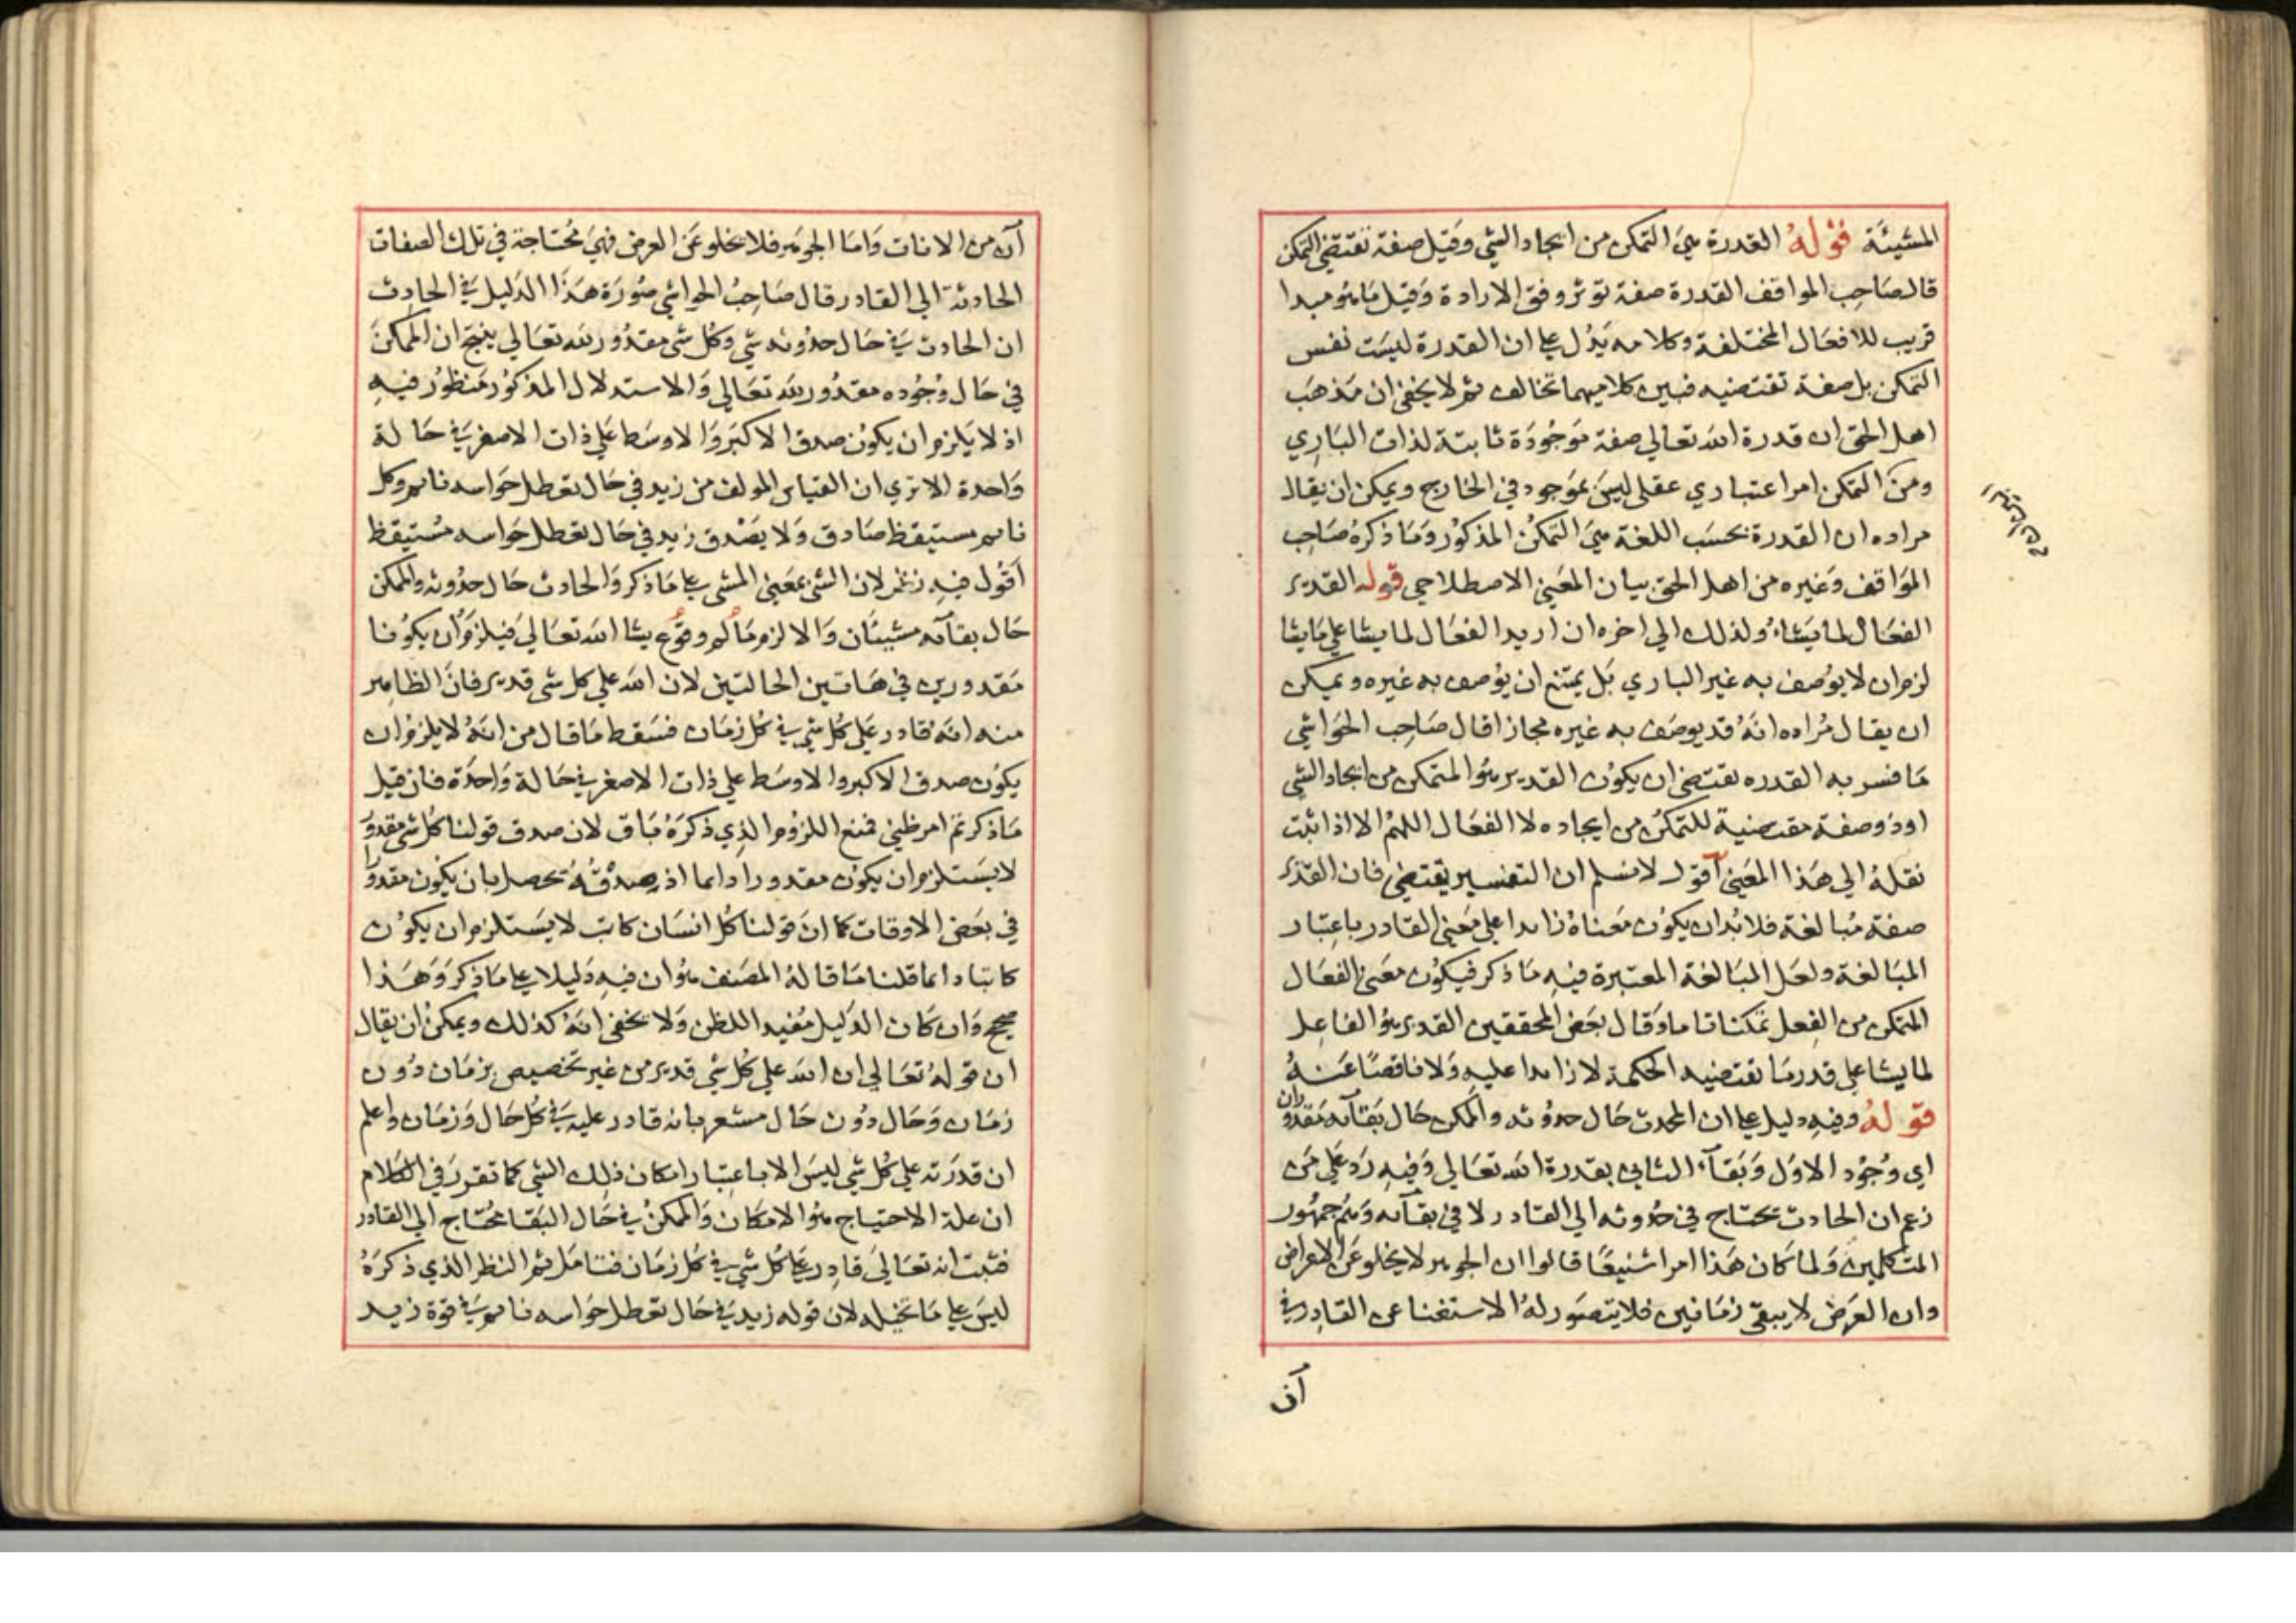 المشيئة قوله القدرة هي التمكن من ايجاد الشي وقيل صفة تقتضي التمكن
قال صاحب المواقف القدرة صفة توثر وفق الارادة وقيل ما هو مبدا
قريب للافعال المختلفة وكلامه يدل على ان القدرة ليست نفس
التمكن بل صفة تقتضيه فبين كلاميهما تخالف ثم لا يخفى ان مذهب
اهل الحق ان قدرة الله تعالى صفة موجودة ثابتة لذات الباري
ومن التمكن امر اعتباري عقلي ليس بموجود في الخارج ويمكن ان يقال
مراده ان القدرة بحسب اللغة هي التمكن المذكور وما ذكره صاحب
المواقف وغيره من اهل الحق بيان المعنى الاصطلاحي قوله القدير
الفعال لما يشاء ولذلك الي اخره ان اريد الفعال لما يشا على ما يشا
لزم ان لا يوصف به غير الباري بل يمتنع ان يوصف به غيره ويمكن
ان يقال مراده انه قد يوصف به غيره مجازا قال صاحب الحواشي
ما فسر به القدره يقتضي ان يكون القدير هو المتمكن من ايجاد الشي
او ذو صفة مقتضية للتمكن من ايجاده لا الفعال اللهم الا اذا ثبت
نقله الي هذا المعنى اقول لا نسلم ان التفسير يقتضي فان القدير
صفة مبالغة فلا بد ان يكون معناه زايدا على معنى القادر باعتبار
المبالغة ولعل المبالغة المعتبرة فيه ما ذكر فيكون معنى الفعال
المتمكن من الفعل تمكنا تاما وقال بعض المحققين القدير هو الفاعل
لما يشا على قدر ما تقتضيه الحكمة لا زايدا عليه ولا ناقصا عنه
قوله وفيه دليل على ان المحدث حال حدوثه والممكن حال بقآئه مقدوران
اي وجود الاول وبقآء الثاني بقدرة الله تعالي وفيه رد على من
زعم ان الحادث يحتاج في حدوثه الي القادر لا في بقآئه وهم جمهور
المتكلمين ولما كان هذا امرا شنيعا قالوا ان الجوهر لا يخلو عن الاعراض
وان العرض لا يبقى زمانين فلا يتصور له الاستغنا عن القادر في
آن
آن من الانات واما الجوهر فلا يخلو عن العرض فهي محتاجة في تلك الصفات
الحادثة الي القادر قال صاحب الحواشي صورة هذا الدليل في الحادث
ان الحادث في حال حدوثه شي وكل شي مقدور لله تعالي ينتج ان الممكن
في حال وجوده مقدور لله تعالي والاستدلال المذكور منظور فيه
اذ لا يلزم ان يكون صدق الاكبر والاوسط على ذات الاصغر في حالة
واحدة الا تري ان القياس المولف من زيد في حال تعطل حواسه نايم وكل
نايم مستيقظ صادق ولا يصدق زيد في حال تعطل حواسه مستيقظ
اقول فيه نظر لان الشي بمعنى المشي على ما ذكر والحادث حال حدوثه والممكن
حال بقآئه مشيئان والا لزم ما لم وقوع يشا الله تعالى فيلزم ان يكونا
مقدورين في هاتين الحالتين لان الله على كل شي قدير فان الظاهر
منه انه قادر على كل شي في كل زمان فسقط ما قال من انه لا يلزم ان
يكون صدق الاكبر والاوسط على ذات الاصغر في حالة واحدة فان قيل
ما ذكرتم امر ظني فمنع اللزوم الذي ذكره باق لان صدق قولنا كل شي مقدور
لا يستلزم ان يكون مقدورا دايما اذ صدقه يحصل بان يكون مقدورا
في بعض الاوقات كما ان قولنا كل انسان كاتب لا يستلزم ان يكون
كاتبا دايما قلنا ما قاله المصنف هو ان فيه دليلا على ما ذكر وهذا
صحيح وان كان الدليل مفيد اللظن ولا يخفى انه كذلك ويمكن ان يقال
ان قوله تعالي ان الله على كل شي قدير من غير تخصيص بزمان دون
زمان وحال دون حال مشعر بانه قادر عليه في كل حال وزمان واعلم
ان قدرته على كل شي ليس الا باعتبار امكان ذلك الشي كما تقرر في الكلام
ان علة الاحتياج هو الامكان والممكن في حال البقا محتاج الي القادر
فثبت انه تعالى قادر على كل شي في كل زمان فتامل ثم النظر الذي ذكره
ليس على ما تخيله لان قوله زيد في حال تعطل حواسه نايم في قوة زيد